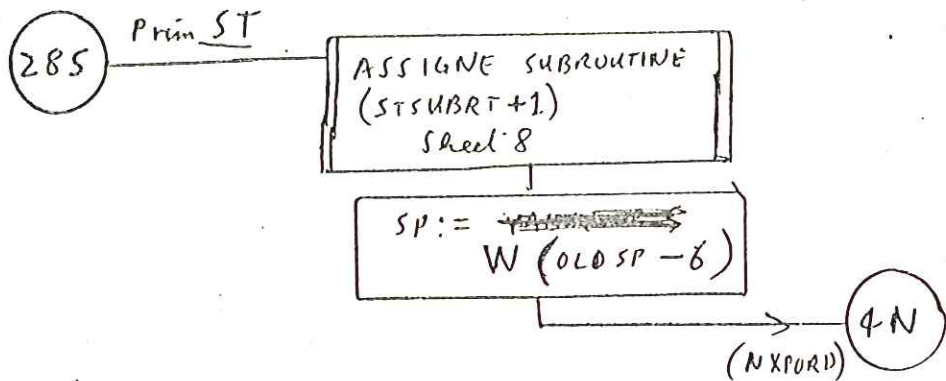 285
Prim ST
ASSIGNE SUBROUTINE
(STSUBRT+1)
Sheet 8
SP :=
W (OLD SP - 6)
4N
(NXPORD)